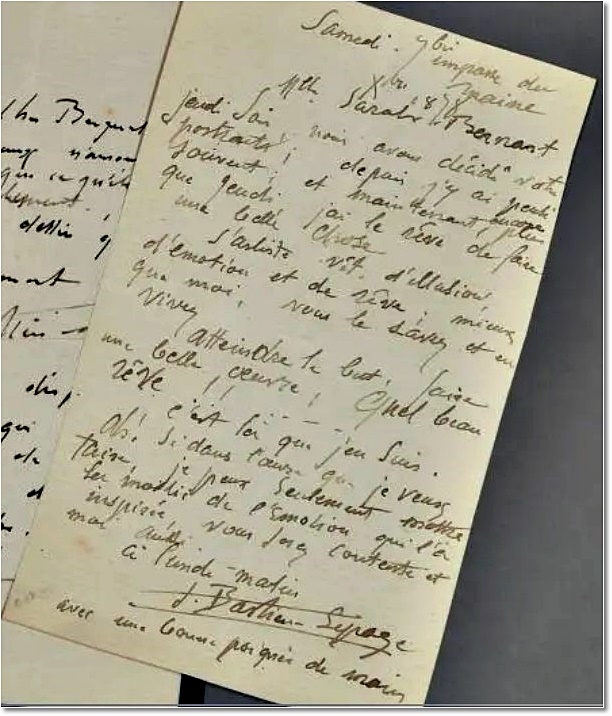 Samedi. 7bre
impasse du
Maine
Xbre 1878
Mlle Sarah Bernart
jeudi soir nous avons décidé votre
portrait; depuis j'y ai pensé
souvent; et maintenant, plus
que jeudi j'ai le rêve de faire
une belle chose
L'artiste vit d'illusion
d'émotion et de rêve; mieux
que moi, vous le savez et en
vivez
Atteindre le but, faire
une belle œuvre! Quel beau
rêve!!
C'est là que j'en suis.
Oh! si dans l'œuvre que je veux
faire, je peux seulement mettre
la moitié de l'Émotion qui l'a
inspirée vous serez contente et
moi aussi.
à lundi-matin
J. Bastien Lepage
avec une bonne poignée de main
que ce qu'il
dessin
qui
de